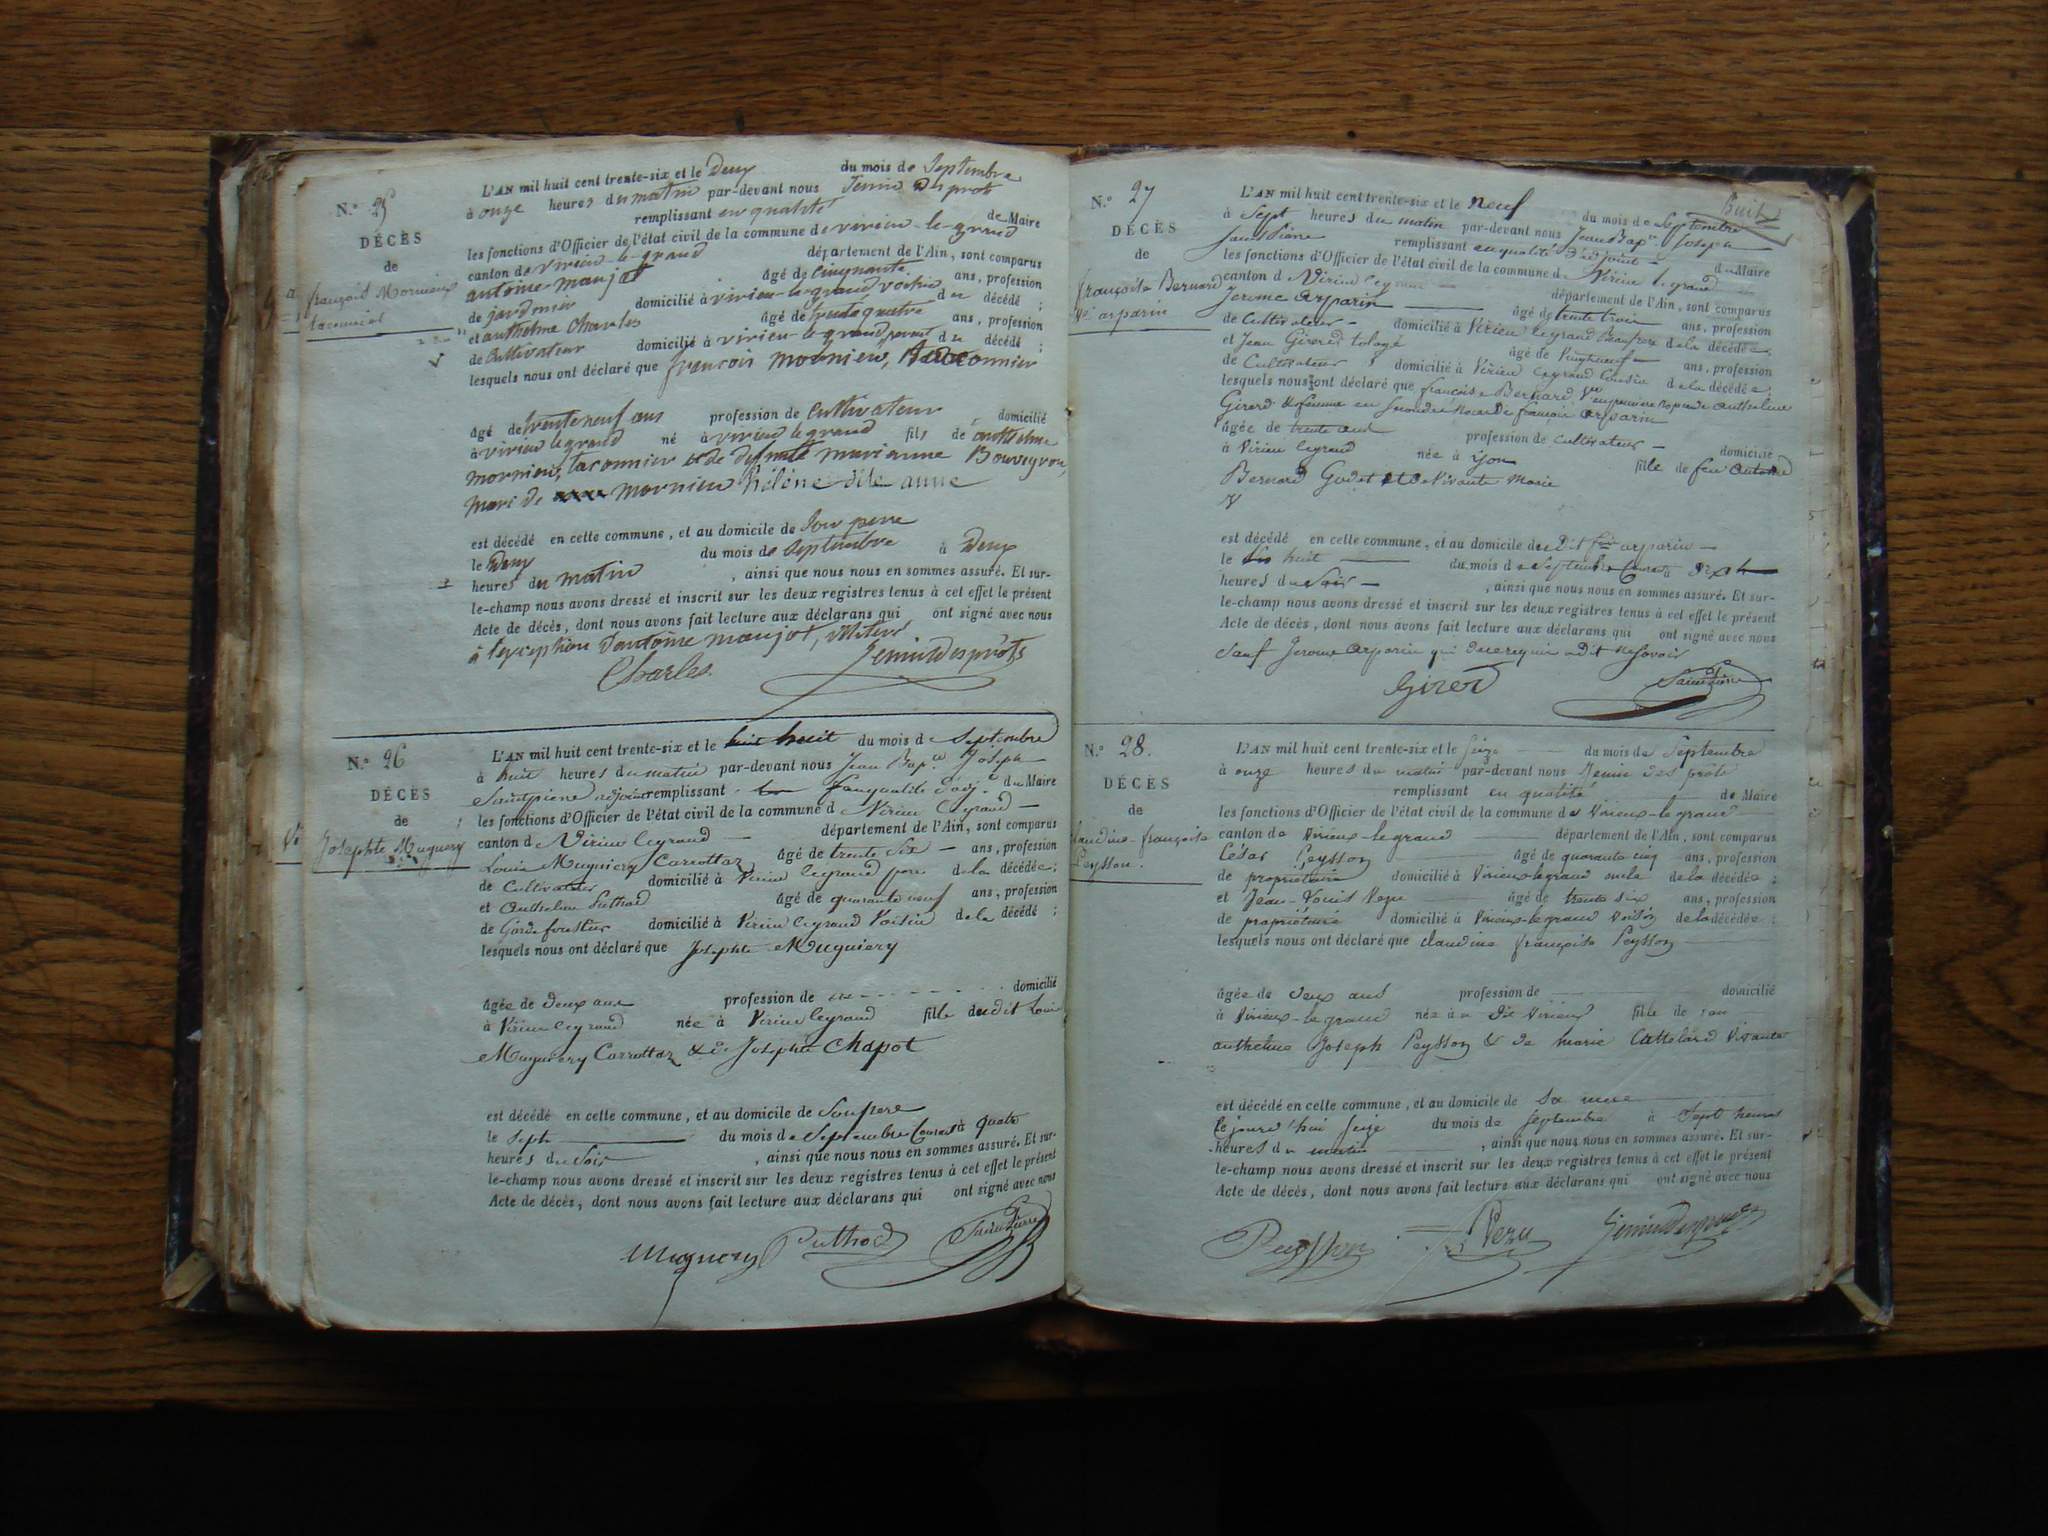 N.° 25
DÉCÈS
de
françois Mornieux
taconnier
L'AN mil huit cent trente-six et le Deux du mois de Septembre
à onze heures du matin par-devant nous Jenin Des prots
remplissant en qualité de Maire
les fonctions d'Officier de l'état civil de la commune de virieu-le-grand
canton de virieu-le-grand département de l'Ain, sont comparus
antoine manjot âgé de cinquante ans, profession
de jardinier domicilié à virieu-le-grand voisin du décédé ;
et anthelme Charles âgé de trente quatre ans, profession
de Cultivateur domicilié à virieu-le-grand parent du décédé ;
lesquels nous ont déclaré que françois mornieu, taconnier
âgé de trente neuf ans profession de Cultivateur domicilié
à virieu le grand né à virieu le grand fils de anthelme
mornieu, taconnier et de défunte marianne Bouveyron,
mari de mornieu hélène dite anne
est décédé en cette commune, et au domicile de Son pere
le Deux du mois de Septembre à Deux
heures du matin , ainsi que nous nous en sommes assuré. Et sur-
le-champ nous avons dressé et inscrit sur les deux registres tenus à cet effet le présent
Acte de décès, dont nous avons fait lecture aux déclarans qui ont signé avec nous
à l'exception D'antoine manjot, illiteré
Charles Jenin Desprots
N.° 26
DÉCÈS
de
Josephte Muguery
L'AN mil huit cent trente-six et le huit du mois de Septembre
à huit heures du matin par-devant nous Jean Bap.te Joseph
Saintpierre adjoint remplissant en qualité d'adj.t du Maire
les fonctions d'Officier de l'état civil de la commune d Virieu legrand
canton d Virieu legrand département de l'Ain, sont comparus
Louis Muguiery Carrottaz âgé de trente Six ans, profession
de Cultivateur domicilié à Virieu legrand pere de la décédée ;
et Anthelme Puthod âgé de quarante neuf ans, profession
de Garde forestier domicilié à Virieu legrand Voisin de la décédé ;
lesquels nous ont déclaré que Josephte Muguiery
âgée de deux ans profession de domicilié
à Virieu legrand née à Virieu legrand fille dudit Louis
Muguiery Carrottaz & de Josephte Chapot
est décédé en cette commune, et au domicile de Son pere
le Sept du mois de Septembre Courant à quatre
heures du Soir , ainsi que nous nous en sommes assuré. Et sur-
le-champ nous avons dressé et inscrit sur les deux registres tenus à cet effet le présent
Acte de décès, dont nous avons fait lecture aux déclarans qui ont signé avec nous
Muguery Puthod SaintPierre
N.° 27
DÉCÈS
de
françoise Bernard
f.e arparin
L'AN mil huit cent trente-six et le neuf du mois de Septembre
à Sept heures du matin par-devant nous Jean Bap.te Joseph
Saint Pierre remplissant en qualité d'adjoint du Maire
les fonctions d'Officier de l'état civil de la commune de Virieu legrand
canton d Virieu legrand département de l'Ain, sont comparus
Jerome Arparin âgé de trente trois ans, profession
de Cultivateur domicilié à Virieu legrand Beaufrere de la décédée ;
et Jean Girerd âgé de Vingt neuf ans, profession
de Cultivateur domicilié à Virieu legrand Cousin de la décédée ;
lesquels nous ont déclaré que françoise Bernard Veuve en premiere noces de Anthelme
Girerd & femme en Secondes Noces de françois arparin
âgée de trente ans profession de cultivateur domicilié
à Virieu legrand née à Yon fille de feu Antoine
Bernard Godet et de Vivante Marie
est décédé en cette commune, et au domicile dudit f.ois arparin
le huit du mois de Septembre Courant à Sept
heures du Soir , ainsi que nous nous en sommes assuré. Et sur-
le-champ nous avons dressé et inscrit sur les deux registres tenus à cet effet le présent
Acte de décès, dont nous avons fait lecture aux déclarans qui ont signé avec nous
Sauf Jerome Arparin qui de ce requis a dit ne Savoir
Girerd SaintPierre
N.° 28.
DÉCÈS
de
laudine-françoise
Peysson.
L'AN mil huit cent trente-six et le Seize du mois de Septembre
à onze heures du matin par-devant nous Jenin Des prots
remplissant en qualité de Maire
les fonctions d'Officier de l'état civil de la commune de Virieux-le-grand
canton de Virieux-le grand département de l'Ain, sont comparus
César Peysson âgé de quarante cinq ans, profession
de propriétaire domicilié à Virieux-legrand oncle de la décédée ;
et Jean-Louis Vezu âgé de trente six ans, profession
de propriétaire domicilié à Virieux-le grand voisin de la décédée ;
lesquels nous ont déclaré que claudine françoise Peysson
âgée de deux ans profession de domicilié
à Virieux-le grand née à u Dit Virieux fille de feu
anthelme Joseph Peysson & de marie Cattelard Vivante
est décédé en cette commune, et au domicile de Sa mere
le jourd'hui Seize du mois de Septembre à Sept heures
heures du matin , ainsi que nous nous en sommes assuré. Et sur-
le-champ nous avons dressé et inscrit sur les deux registres tenus à cet effet le présent
Acte de décès, dont nous avons fait lecture aux déclarans qui ont signé avec nous
Peysson Vezu Jenin Desprots